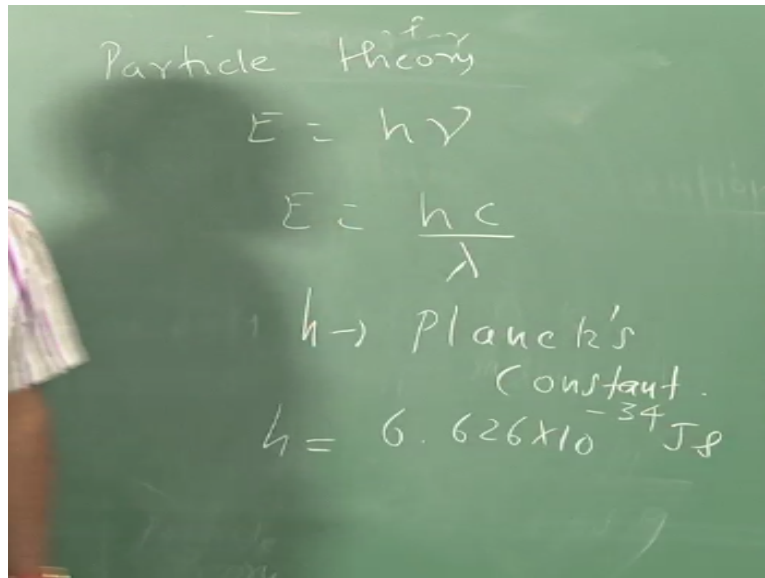 Particle theory
E = hν
E = hc/λ
h → Planck's
Constant.
h = 6.626×10⁻³⁴ Js